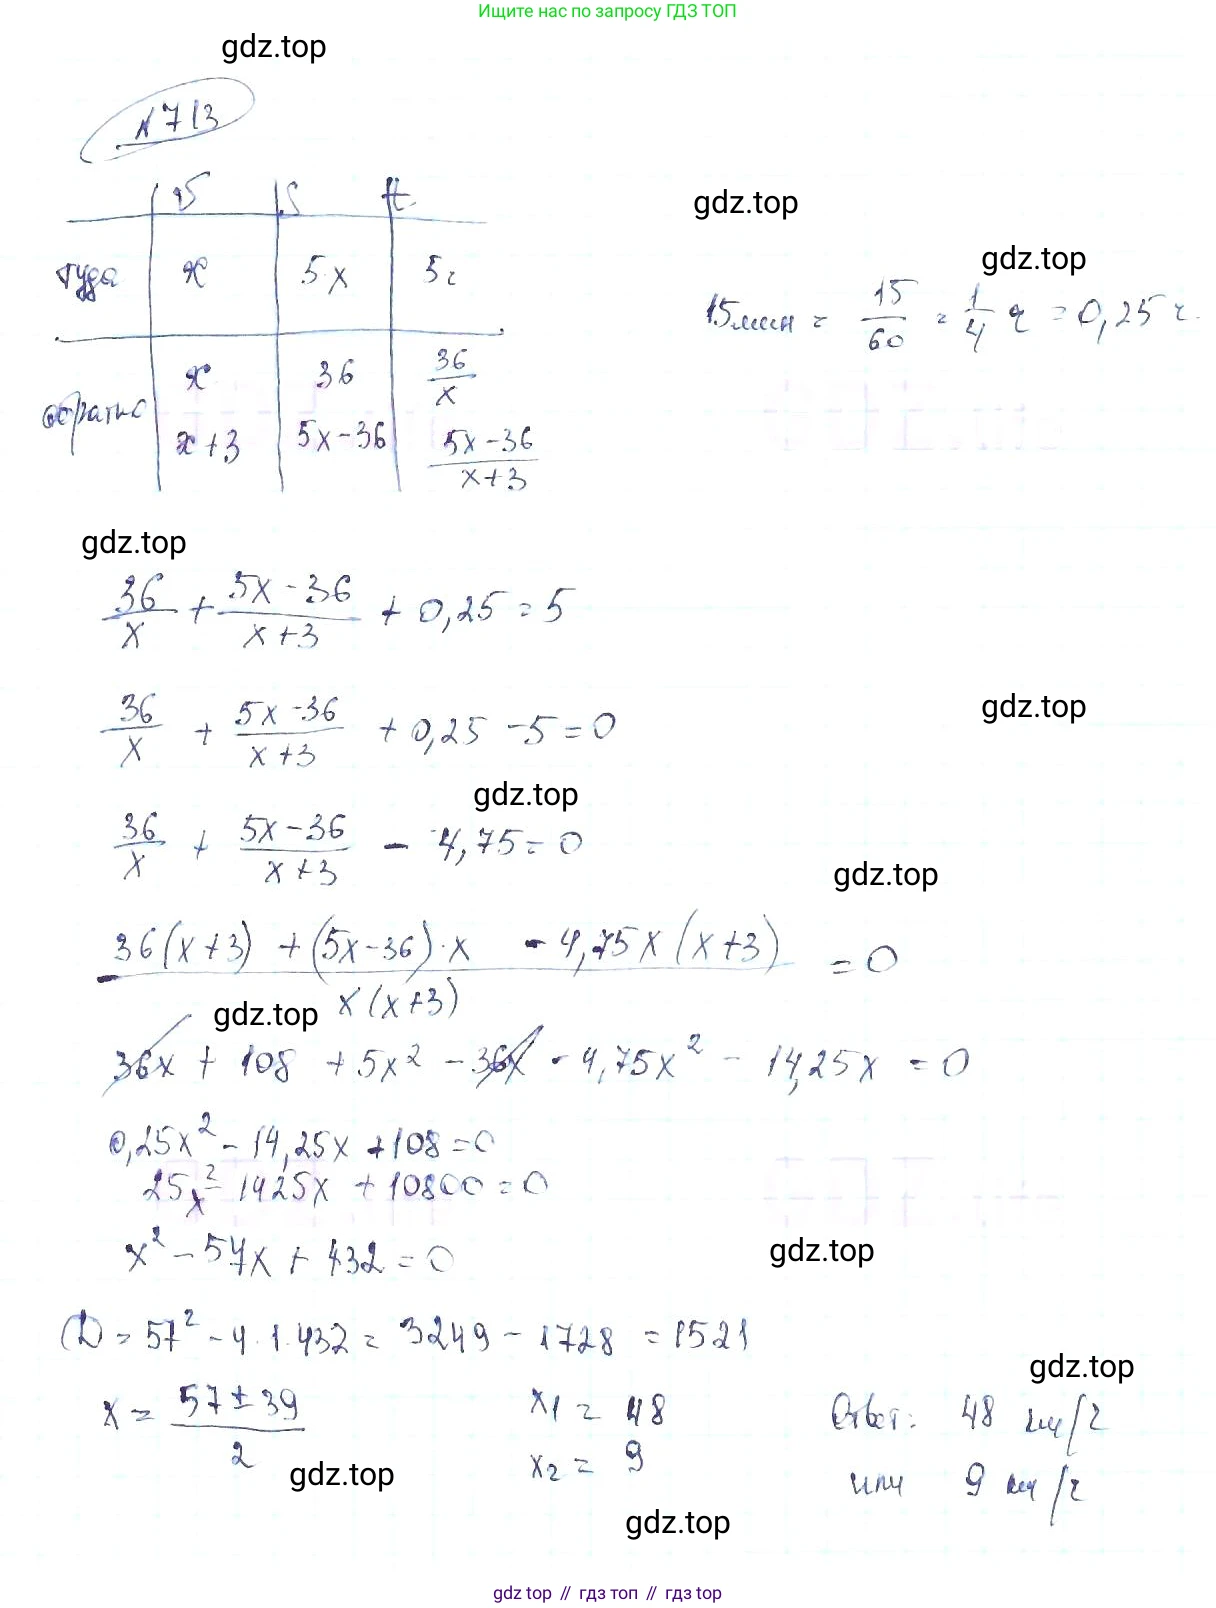 Ищите нас по запросу ГДЗ ТОП
gdz.top
N 713
v S t
gdz.top
туда x 5x 5ч
gdz.top
15 мин = 15/60 = 1/4 ч = 0,25 ч.
обратно x 36 36/x
x+3 5x-36 (5x-36)/(x+3)
gdz.top
36/x + (5x-36)/(x+3) + 0,25 = 5
36/x + (5x-36)/(x+3) + 0,25 - 5 = 0
gdz.top
gdz.top
36/x + (5x-36)/(x+3) - 4,75 = 0
gdz.top
(36(x+3) + (5x-36)·x - 4,75x(x+3))/(x(x+3)) = 0
gdz.top
36x + 108 + 5x² - 36x - 4,75x² - 14,25x = 0
0,25x² - 14,25x + 108 = 0
25x² - 1425x + 10800 = 0
x² - 57x + 432 = 0
gdz.top
D = 57² - 4·1·432 = 3249 - 1728 = 1521
gdz.top
x = (57 ± 39)/2 x1 = 48 Ответ: 48 км/ч
x2 = 9 или 9 км/ч
gdz.top
gdz.top
gdz top // гдз топ // гдз top